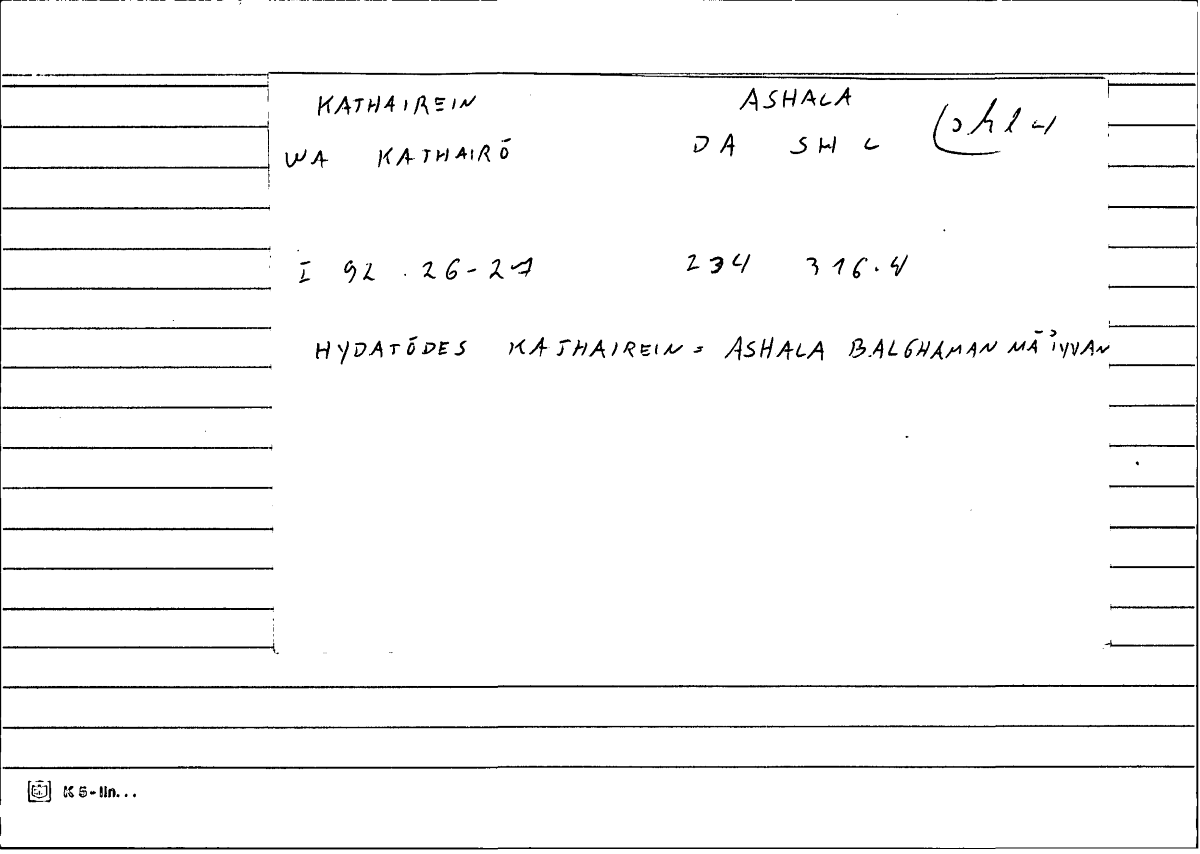 KATHAIREIN ASHALA
WA KATHAIRŌ DA SH L
I 92 . 26-27 234 316.4
HYDATŌDES KATHAIREIN = ASHALA BALGHAMAN MĀʾIYYAN
K 5 - lin...